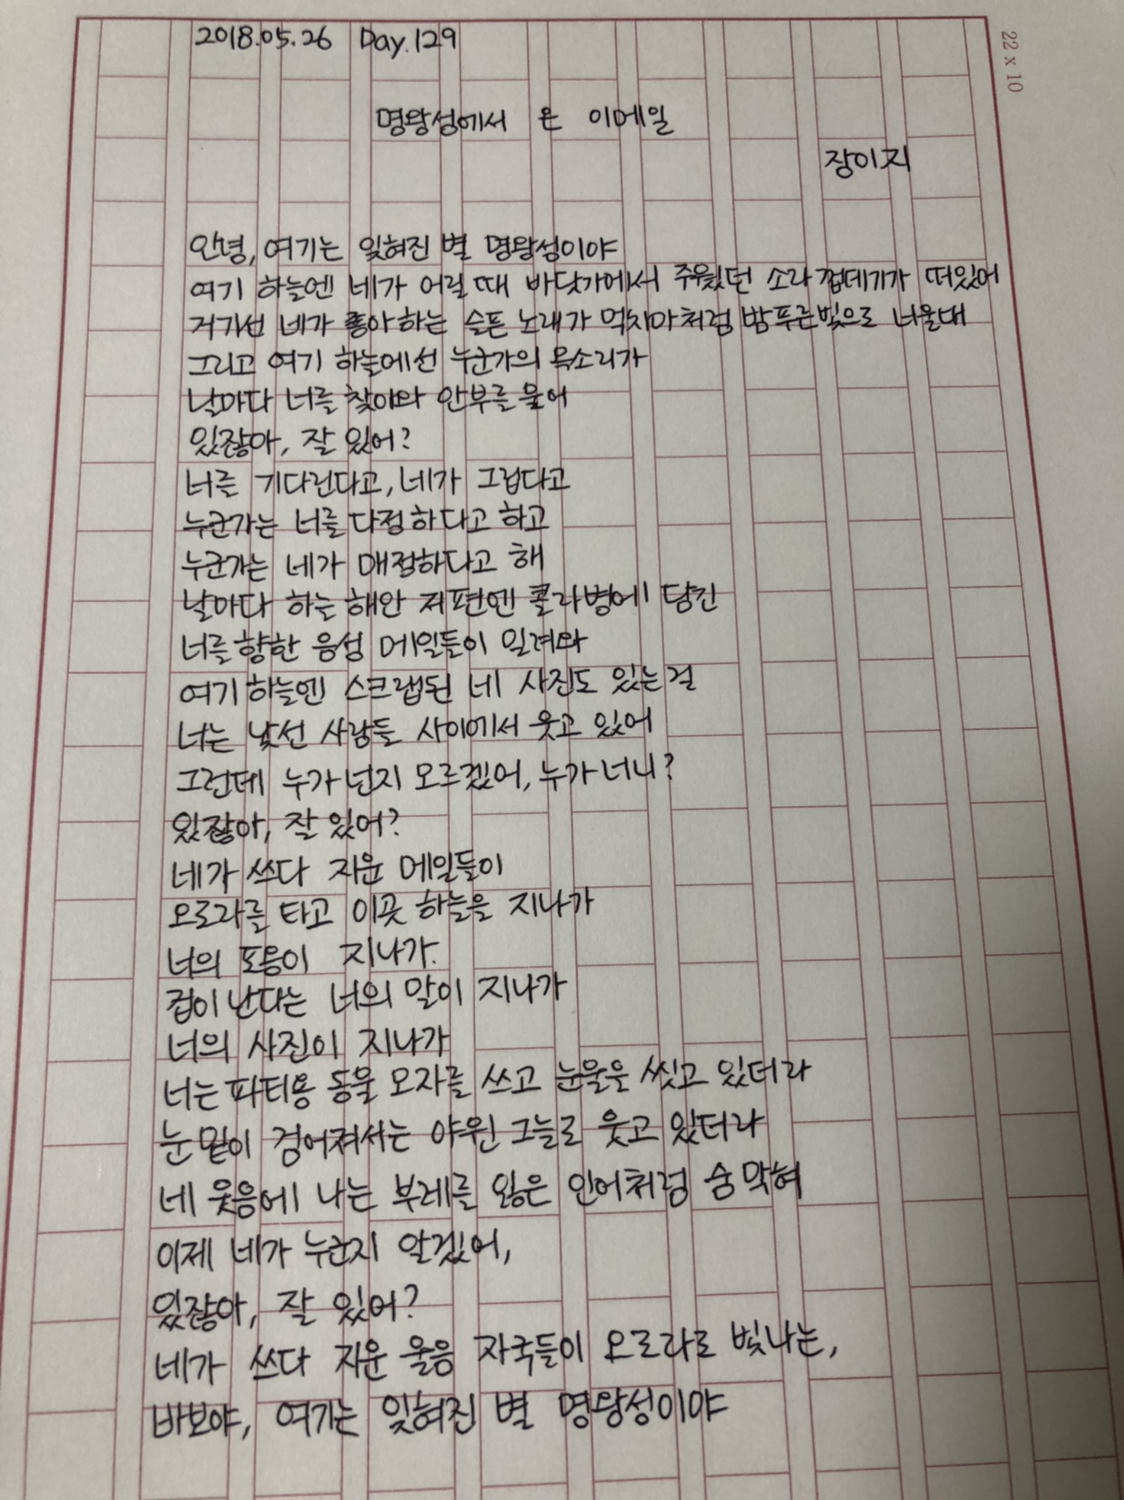 2018.05.26 Day.129
22 x 10
명왕성에서 온 이메일
장이지
안녕, 여기는 잊혀진 별 명왕성이야
여기 하늘엔 네가 어릴 때 바닷가에서 주웠던 소라 껍데기가 떠있어
거기선 네가 좋아하는 슬픈 노래가 먹치마처럼 밤푸른빛으로 너울대
그리고 여기 하늘에선 누군가의 목소리가
날마다 너를 찾아와 안부를 물어
있잖아, 잘 있어?
너를 기다린다고, 네가 그립다고
누군가는 너를 다정하다고 하고
누군가는 네가 매정하다고 해
날마다 하늘 해안 저편엔 콜라병에 담긴
너를 향한 음성 메일들이 밀려와
여기 하늘엔 스크랩된 네 사진도 있는걸
너는 낯선 사람들 사이에서 웃고 있어
그런데 누가 넌지 모르겠어, 누가 너니?
있잖아, 잘 있어?
네가 쓰다 지운 메일들이
오로라를 타고 이곳 하늘을 지나가
너의 포옹이 지나가.
겁이 난다는 너의 말이 지나가
너의 사진이 지나가
너는 파티용 동물 모자를 쓰고 눈물을 씻고 있더라
눈 밑이 검어져서는 야윈 그늘로 웃고 있더라
네 웃음에 나는 부레를 잃은 인어처럼 숨 막혀
이제 네가 누군지 알겠어,
있잖아, 잘 있어?
네가 쓰다 지운 울음 자국들이 오로라로 빛나는,
바보야, 여기는 잊혀진 별 명왕성이야